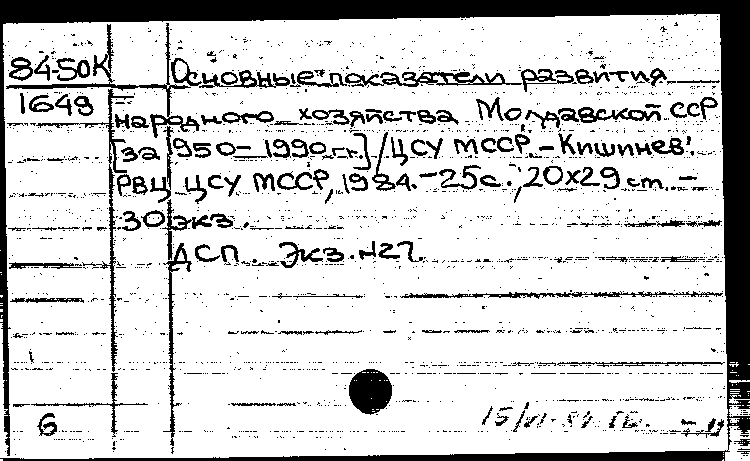 84-50К Основные показатели развития
1649 народного хозяйства Молдавской ССР
[за 1950-1990 гг.] /ЦСУ МССР. - Кишинев:
РВЦ ЦСУ МССР, 1984. - 25с.; 20х29 ст. -
30 экз.
ДСП. Экз. N27.
6 15/VI-84